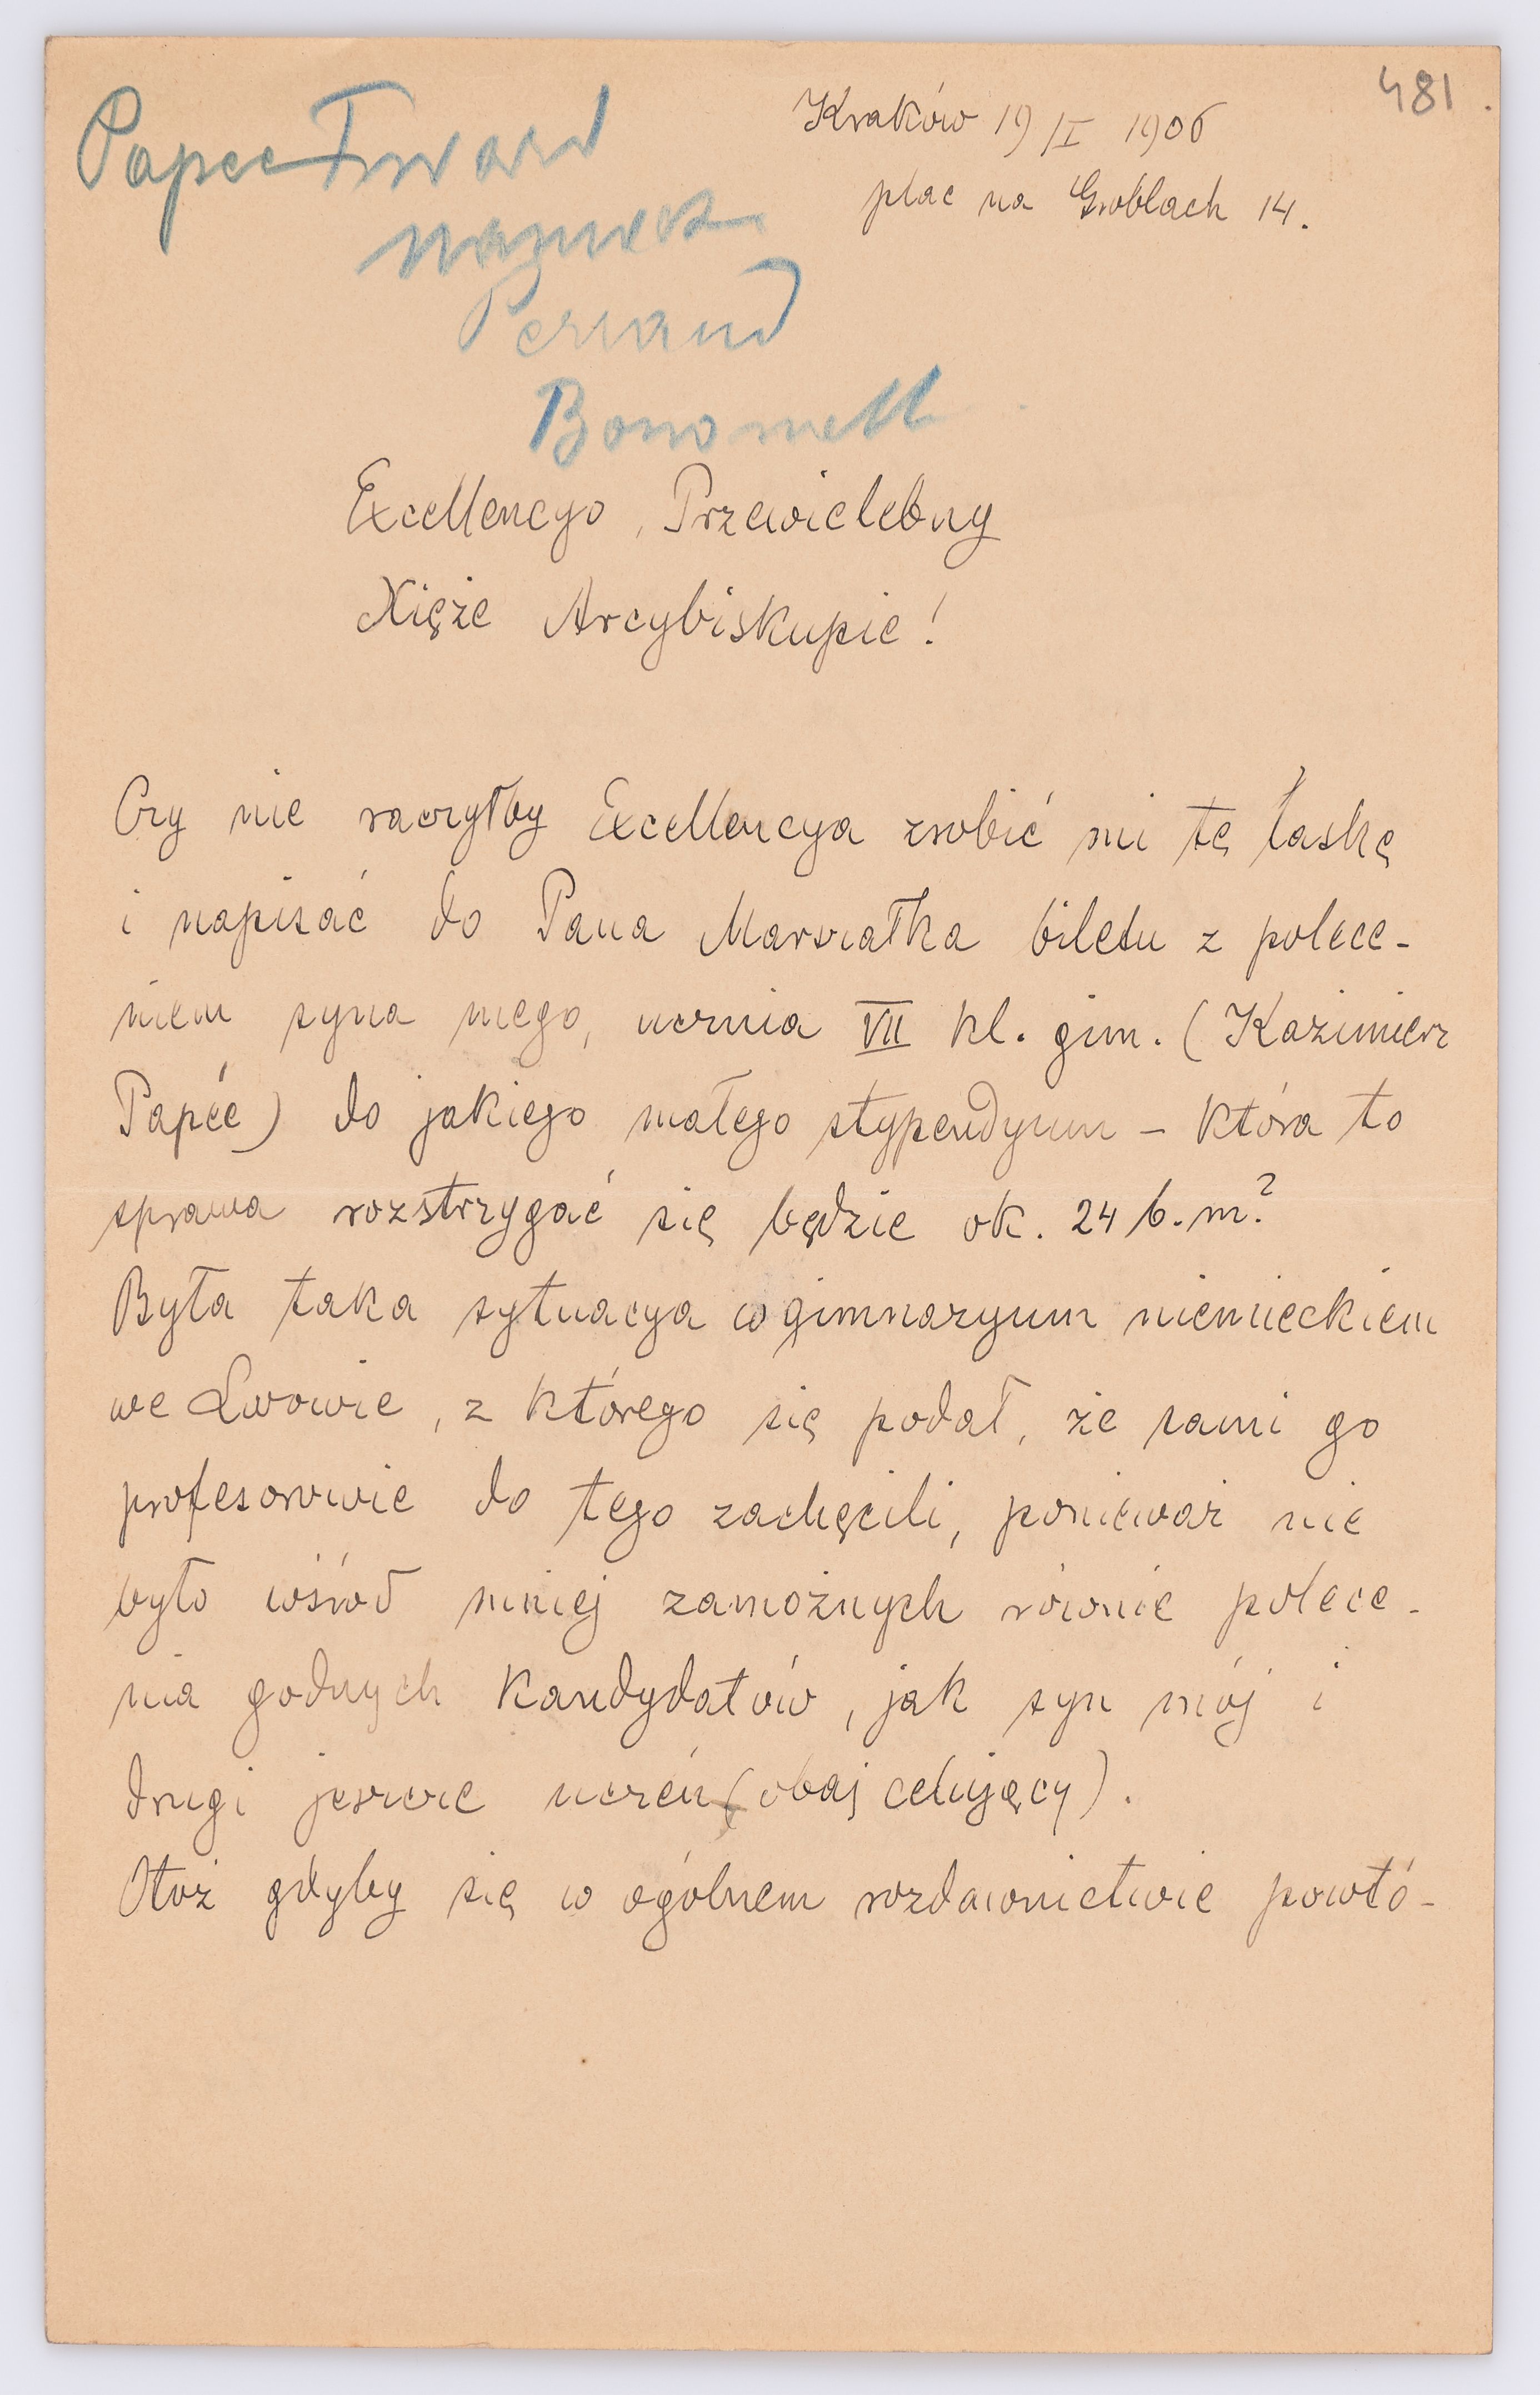 481.
Kraków 19/I 1906
plac na Groblach 14.
Papee
Bonomelli
Excellencyo, Przewielebny
Xięże Arcybiskupie!
Czy nie raczyłby Excellencya zrobić mi tę łaskę
i napisać do Pana Marszałka biletu z polece-
niem syna mego, ucznia VII kl. gim. (Kazimierz
Papée) do jakiego małego stypendyum – która to
sprawa rozstrzygać się będzie ok. 24 b. m.?
Była taka sytuacya w gimnazyum niemieckiem
we Lwowie, z którego się podał, że sami go
profesorowie do tego zachęcili, ponieważ nie
było wśród mniej zamożnych równie polece-
nia godnych kandydatów, jak syn mój i
drugi jeszcze uczeń (obaj celujący).
Otoż gdyby się w ogólnem rozdawnictwie powtó-